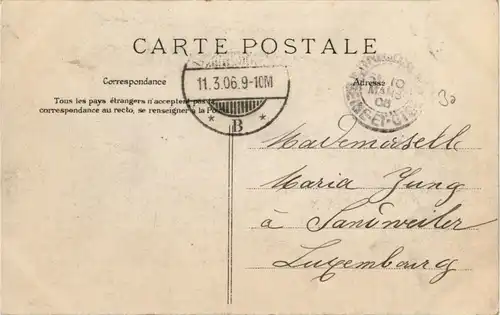 CARTE POSTALE
Correspondance
Adresse
Tous les pays étrangers n'acceptent pas
correspondance au recto, se renseigner à la Po
11.3.06.9-10M
* B *
10
MARS
06
SEINE-ET-OISE
Mademoiselle
Maria Jung
à Sandweiler
Luxembourg